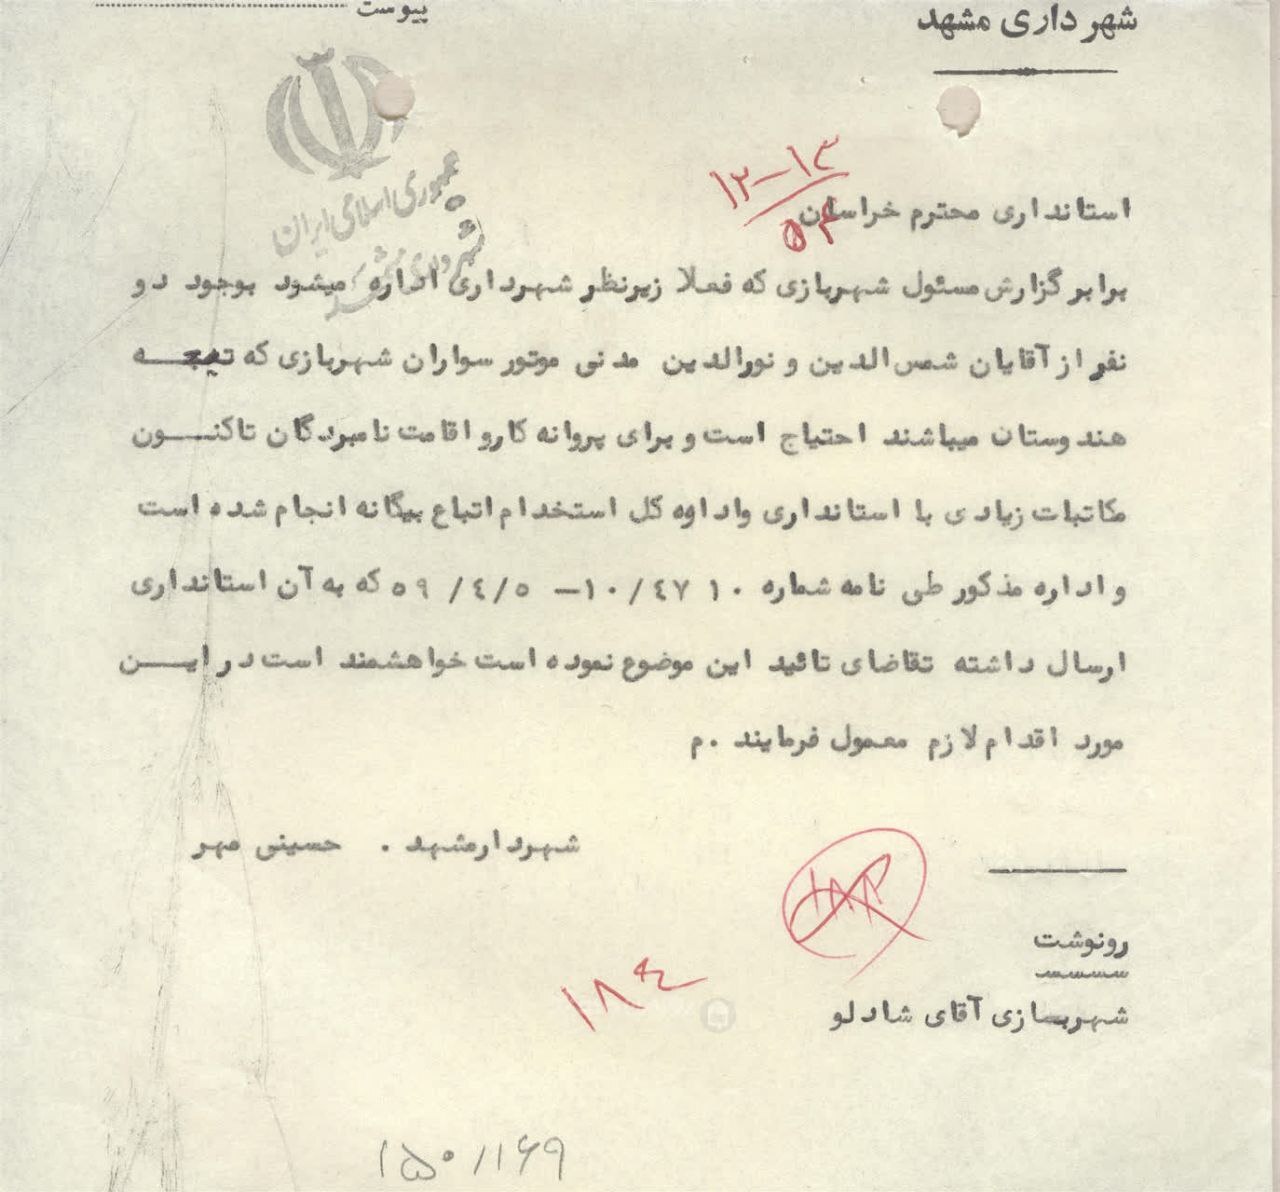 پیوست
شهرداری مشهد
جمهوری اسلامی ایران
۱۲-۱۳
۵۴
استانداری محترم خراسان
برابر گزارش مسئول شهربازی که فعلا زیرنظر شهرداری اداره میشود بوجود دو
نفر از آقایان شمس الدین و نورالدین مدنی موتور سواران شهربازی که تبعه
هندوستان میباشند احتیاج است و برای پروانه کار و اقامت نامبردگان تاکنون
مکاتبات زیادی با استانداری واداوه کل استخدام اتباع بیگانه انجام شده است
و اداره مذکور طی نامه شماره ۱۰/۴۷۱۰ - ۵۹/۴/۵ که به آن استانداری
ارسال داشته تقاضای تائید این موضوع نموده است خواهشمند است در این
مورد اقدام لازم معمول فرمایند .م
شهردار مشهد . حسینی مهر
رونوشت
شهربازی آقای شادلو
۱۸۴
۱۵۰/۱۶۹